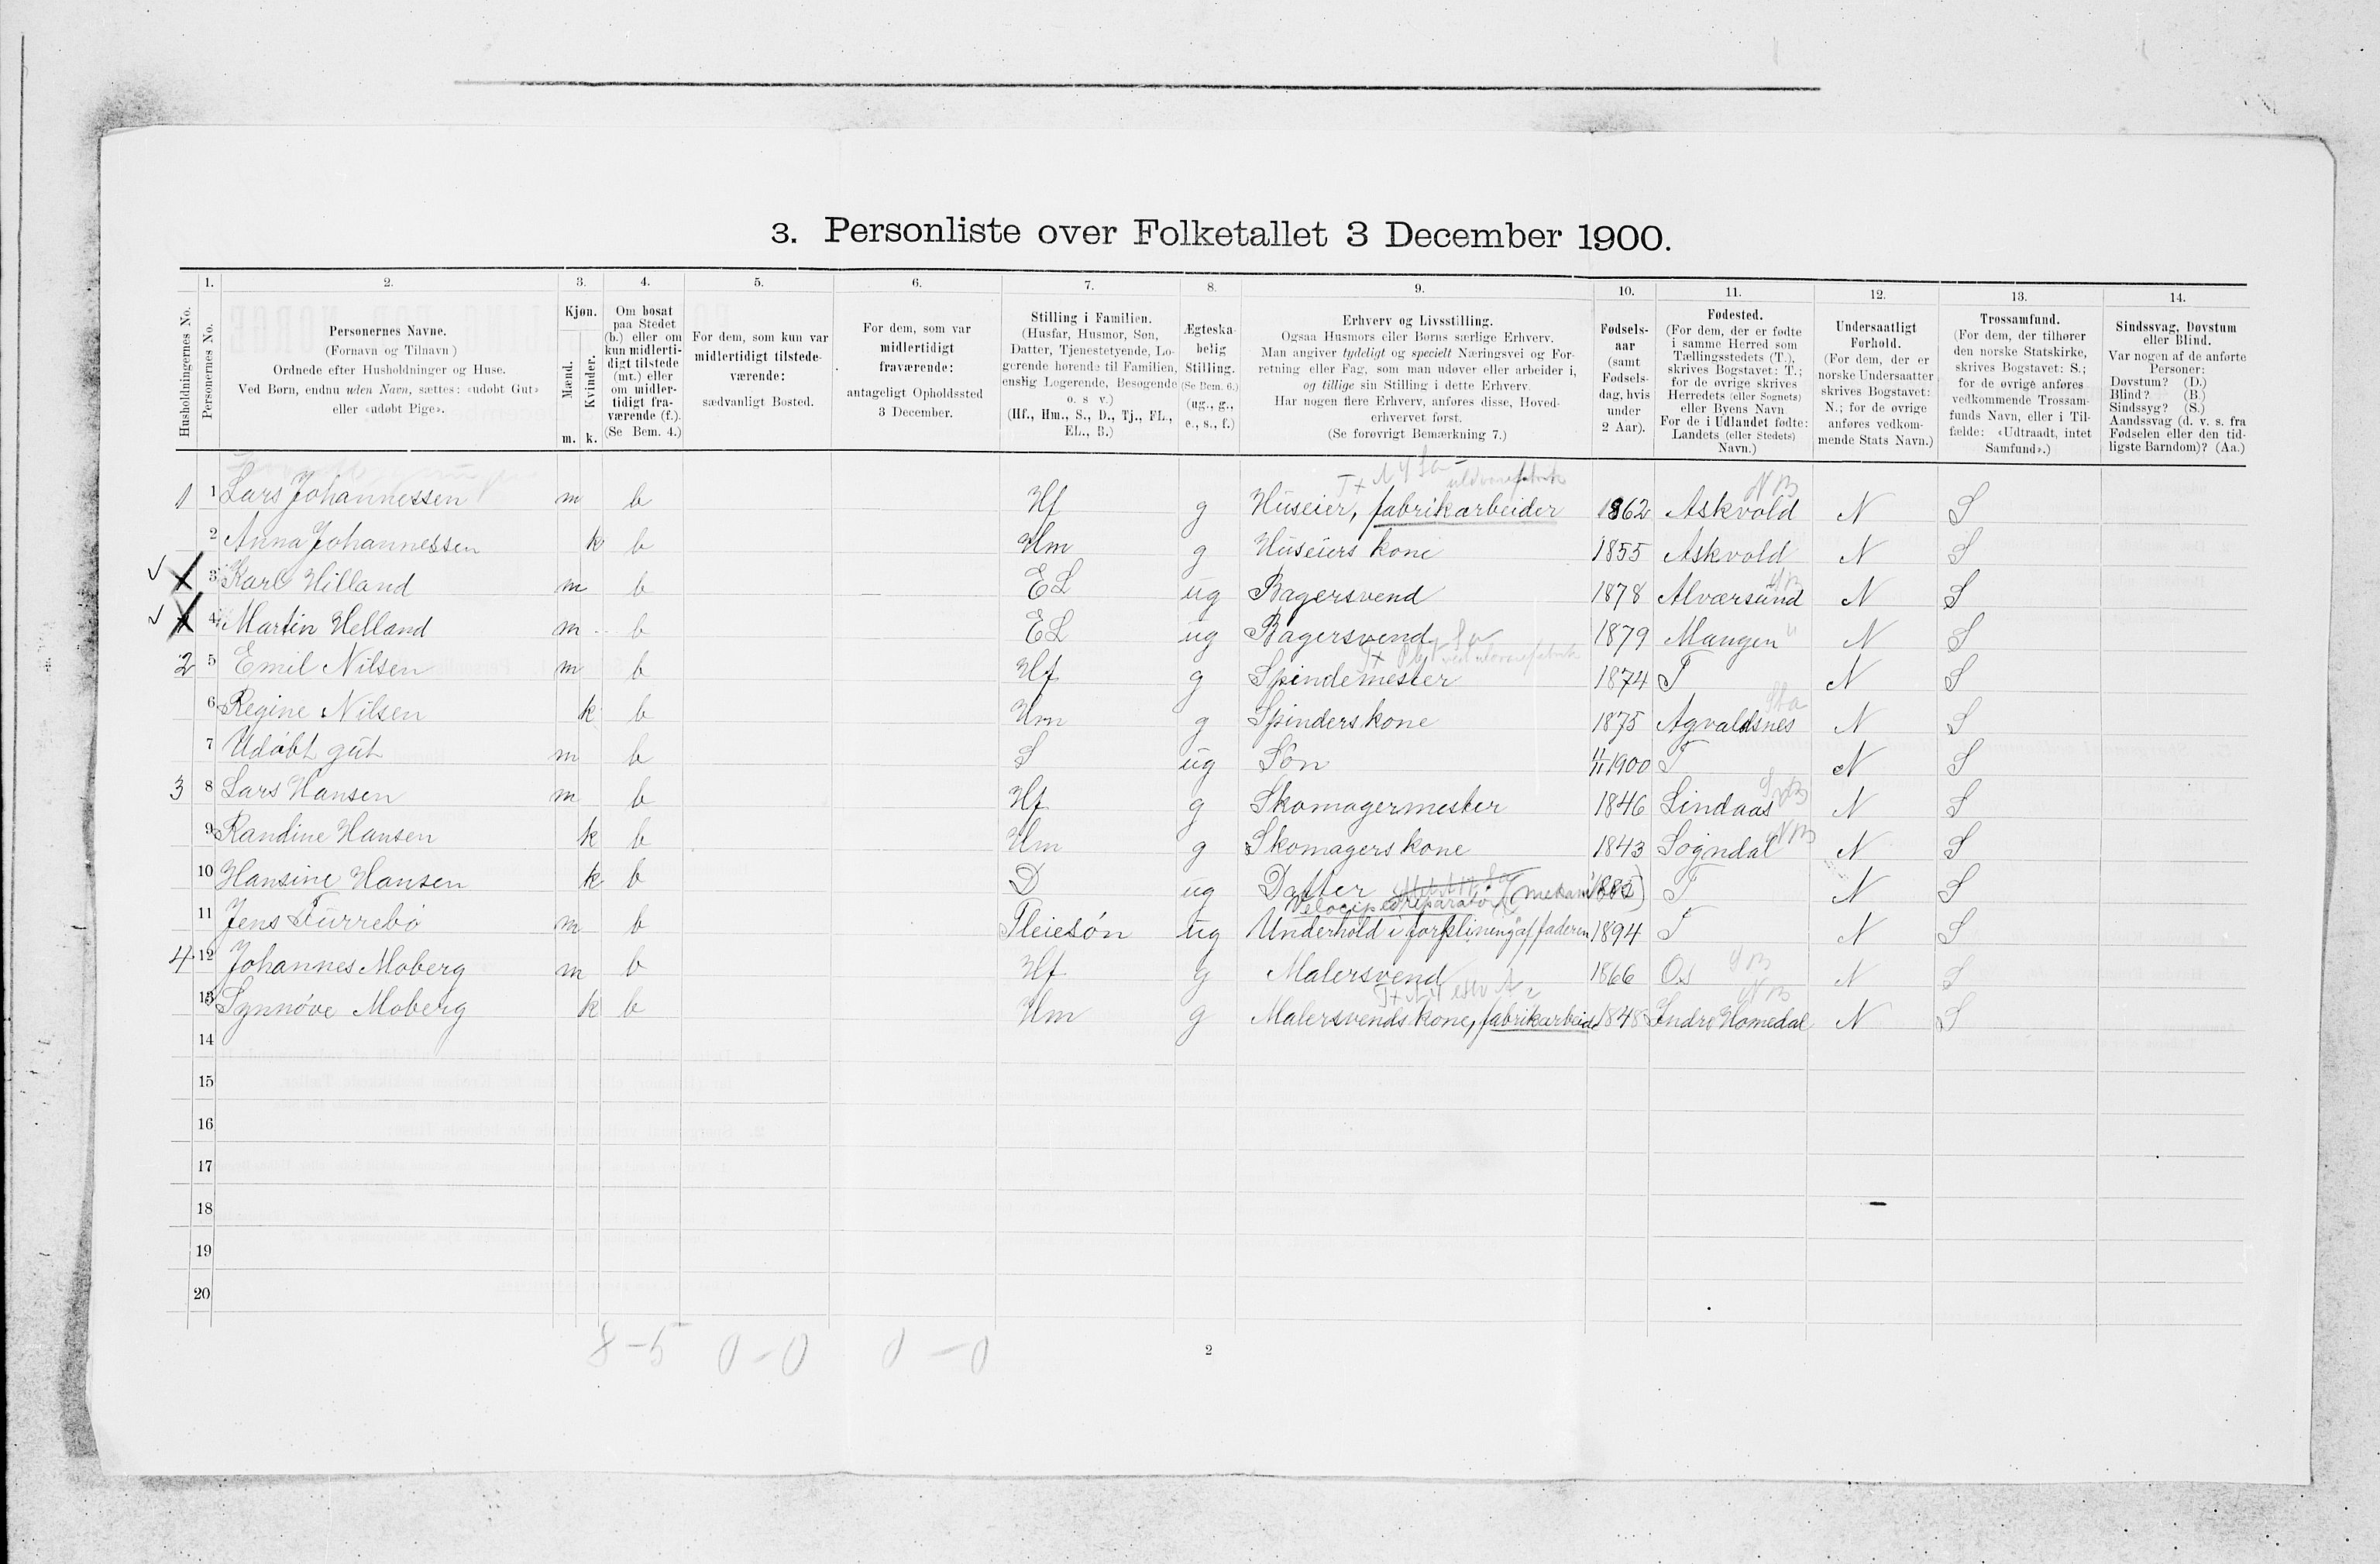 3. Personliste over Folketallet 3 December 1900.
Husholdningernes No.
1. Personernes No.
2. Personernes Navne.
(Fornavn og Tilnavn)
Ordnede efter Husholdninger og Huse.
Ved Børn, endnu uden Navn, sættes: «udøbt Gut»
eller «udøbt Pige».
3. Kjøn.
Mænd. Kvinder.
m. k.
4. Om bosat
paa Stedet
(b.) eller om
kun midlerti-
digt tilstede
(mt.) eller
om midler-
tidigt fra-
værende (f.).
(Se Bem. 4.)
5. For dem, som kun var
midlertidigt tilstede-
værende:
sædvanligt Bosted.
6. For dem, som var
midlertidigt
fraværende:
antageligt Opholdssted
3 December.
7. Stilling i Familien.
(Husfar, Husmor, Søn,
Datter, Tjenestetyende, Lo-
gerende hørende til Familien,
enslig Logerende, Besøgende
o. s. v.)
(Hf., Hm., S., D., Tj., FL.,
EL., B.)
8. Ægteska-
belig
Stilling.
(Se Bem. 6.)
(ug., g.,
e., s., f.)
9. Erhverv og Livsstilling.
Ogsaa Husmors eller Børns særlige Erhverv.
Man angiver tydeligt og specielt Næringsvei og For-
retning eller Fag, som man udøver eller arbeider i,
og tillige sin Stilling i dette Erhverv.
Har nogen flere Erhverv, anføres disse, Hoved-
erhvervet først.
(Se forøvrigt Bemærkning 7.)
10. Fødsels-
aar
(samt
Fødsels-
dag, hvis
under
2 Aar).
11. Fødested.
(For dem, der er fødte
i samme Herred som
Tællingsstedets (T.),
skrives Bogstavet: T.;
for de øvrige skrives
Herredets (eller Sognets)
eller Byens Navn.
For de i Udlandet fødte:
Landets (eller Stedets)
Navn.)
12. Undersaatligt
Forhold.
(For dem, der er
norske Undersaatter
skrives Bogstavet:
N.; for de øvrige
anføres vedkom-
mende Stats Navn.)
13. Trossamfund.
(For dem, der tilhører
den norske Statskirke,
skrives Bogstavet: S.;
for de øvrige anføres
vedkommende Trossam-
funds Navn, eller i Til-
fælde: «Udtraadt, intet
Samfund».)
14. Sindssvag, Døvstum
eller Blind.
Var nogen af de anførte
Personer:
Døvstum? (D.)
Blind? (B.)
Sindssyg? (S.)
Aandssvag (d. v. s. fra
Fødselen eller den tid-
ligste Barndom)? (Aa.)
uldvarefabrik
1 1 Lars Johannessen m b Hf g Huseier, fabrikarbeider 1862 Askvold N S
2 Anna Johannessen k b Hm g Huseiers kone 1855 Askvold N S
3 Karl Hilland m b EL ug Bagersvend 1878 Alværsund N S
4 Martin Helland m b EL ug Bagersvend 1879 Mangen N S
2 5 Emil Nilsen m b Hf g Spindemester 1874 T N S
6 Regine Nilsen k b Hm g Spinders kone 1875 Agvaldsnes N S
7 Udøbt gut m b S ug Søn 11/11 1900 T N S
3 8 Lars Hansen m b Hf g Skomagermester 1846 Lindaas N S
9 Randine Hansen k b Hm g Skomagers kone 1843 Sogndal N S
10 Hansine Hansen k b D ug Datter 1882 T N S
Velocipedreparatø
11 Jens m b Pleiesøn ug Underhold i af faderen 1894 T N S
4 12 Johannes Moberg m b Hf g Malersvend 1866 Os N S
13 Synnøve Moberg k b Hm g Malersvends kone, fabrikarbeid 1848 Indre Homedal N S
14
15
16
17
18
19
20
8-5 0-0 0-0
2